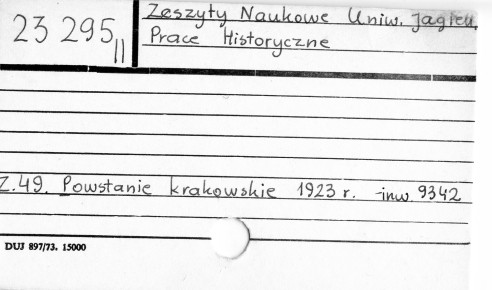 23 295 II
Zeszyty Naukowe Uniw. Jagiell.
Prace Historyczne
Z.49. Powstanie krakowskie 1923 r. -inw. 9342
DUJ 897/73. 15000